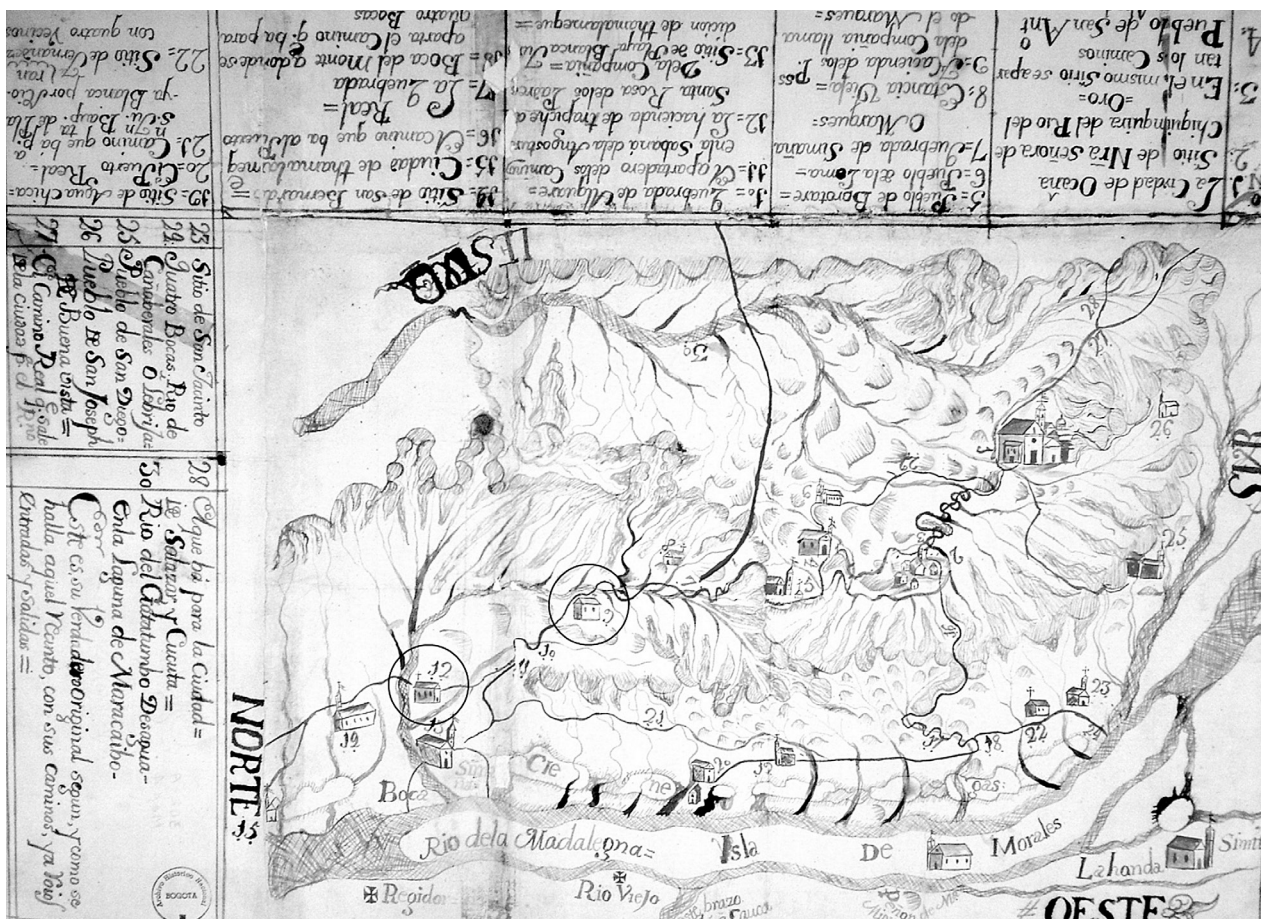 1. La Ciudad de Ocaña
2. Sitio de Nra Señora de
Chiquinquira del Rio del
=Oro=
3. En el mismo Sitio se apar
tan los Caminos
4. Pueblo de San Antº
5= Pueblo de Borotare=
6= Pueblo de la Loma=
7 Quebrada de Simaña
O Marques=
8= Estancia Vieja=
9= Hacienda delos P. pss
dela Compañia llama
do el Marques=
10= Quebrada de Alguare=
11= El apartadero delos Caminos
enla Sabana dela Angostura
12= La hacienda de trapiche
Santa Rosa delos Padres
Dela Compañia=
13= Sitio de Playa Blanca
dicion de thamalameque=
14 Sitio de San Bernardo=
15= Ciudad de thamalameq
16= El camino que ba al Puerto
Real=
17= La Quebrada
18= Boca del Monte adonde se
aparta el Camino q. ba para
quatro Bocas
19= Sitio de Agua Chica=
20= Puerto Real=
21= Camino que ba a
ya Blanca por
22= Sitio de
con quatro Vecinos
23 Sitio de San Jacinto
24 Quatro Bocas, Rio de
Cañaverales O Lebrija=
25 Pueblo de San Diego=
26 Pueblo DE San Joseph
DE Buena vista=
27 El Camino Real q. Sale
dela Ciudad
28 Aque bá para la Ciudad=
DE Salazar y Cucuta=
30 Rio del Catatumbo Desagua-
enla Laguna de Maracaibo-
Este es su Verdadero original segun, y como se
halla aquel Recinto, con sus caminos, ya Rios
entradas y salidas=
Archivo Historico Nacional
BOGOTA
ESTE
SUR
NORTE
OESTE
30
28
27
26
22
25
2
9
10
11
12
13
19
21
23
18
20
Boca
Cie ne gas
Rio dela Madalegna= Isla De Morales
Lahonda
Simiti
Regidor
Rio Viejo
brazo
Cauca